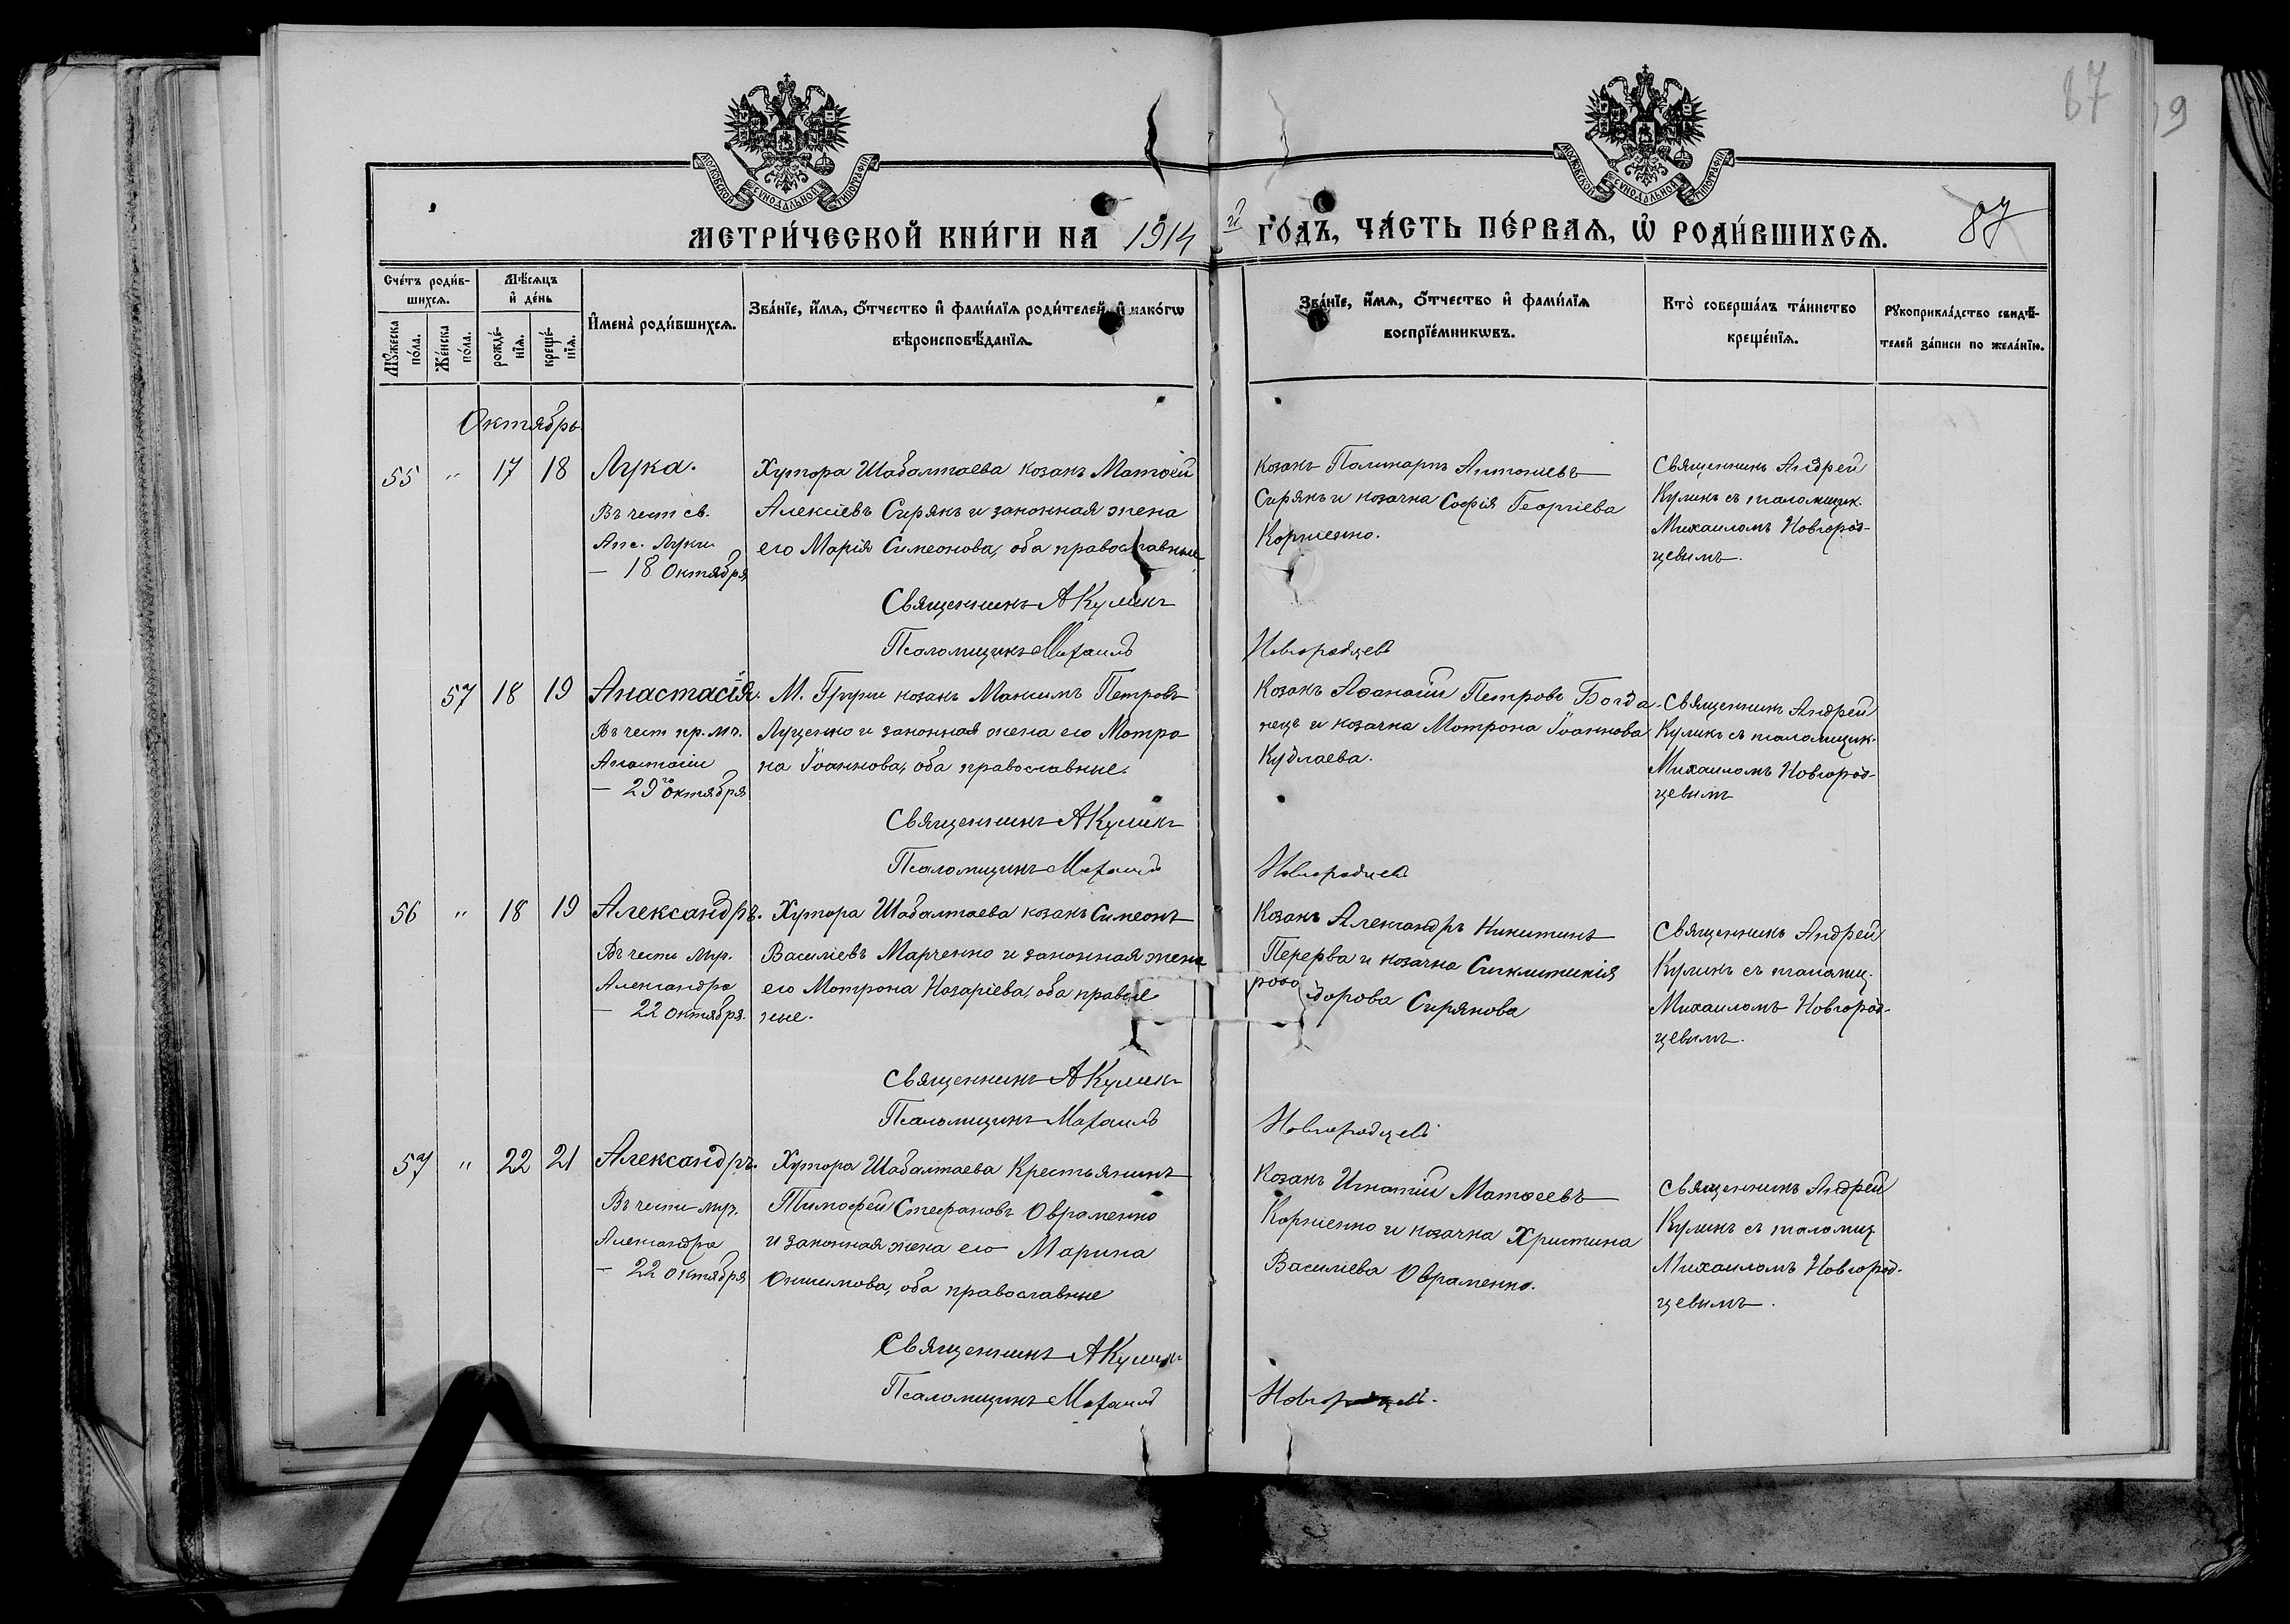 87
МОСКОВСКОЙ СѴНОДАЛЬНОЙ ТИПОГРАФІИ
МОСКОВСКОЙ СѴНОДАЛЬНОЙ ТИПОГРАФІИ
МЕТРИ́ЧЕСКОЙ КНИ́ГИ НА 1914 й ГО́ДЪ, ЧА́СТЬ ПЕ́РВАѦ, Ѡ РОДИ́ВШИХСѦ. 87
Сче́тъ роди́в-
шихсѧ.
Мꙋ́жеска по́ла.
Же́нска по́ла.
Мѣ́сѧцъ
и де́нь
рожде́-
нїѧ.
креще́-
нїѧ.
Имена̀ роди́вшихсѧ.
Зва́нїе, и́мѧ, ѻ́тчество и фами́лїѧ роди́телей, и како́гѡ
вѣроисповѣ́данїѧ.
Зва́нїе, и́мѧ, ѻ́тчество и фами́лїѧ
воспрїе́мникѡвъ.
Кто̀ соверша́лъ та́инство
креще́нїѧ.
Рꙋкоприкла́дство свидѣ́-
телей за́писи по жела́нїю.
Октябрь
55 " 17 18 Лука.
Въ чест св.
Апс. Луки
— 18 Октября
Хутора Шабалтаева козакъ Матѳей
Алексіевъ Сирякъ и законная жена
его Марія Симеонова, оба православные
Священникъ А Куликъ
Псаломщикъ Михаилъ
Козакъ Поликарпъ Антоніевъ
Сирякъ и козачка Софія Георгіева
Корніенко.
Новгородцевъ
Священникъ Андрей
Куликъ съ псаломщик.
Михаиломъ Новгород-
цевымъ.
57 18 19 Анастасія.
Въ чест пр. мч.
Анастасіи
— 29го октября
М. Груни козакъ Максимъ Петровъ
Луценко и законная жена его Мотро
на Іоаннова, оба православные.
Священникъ А Куликъ
Псаломщикъ Михаилъ
Козакъ Аѳанасій Петровъ Богда-
нецъ и козачка Мотрона Іоаннова
Кудлаева.
Новгородцевъ
Священникъ Андрей
Куликъ съ псаломщик.
Михаиломъ Новгород-
цевымъ
56 " 18 19 Александръ.
Въ честь муч.
Александра
— 22 октября.
Хутора Шабалтаева козакъ Симеонъ
Василіевъ Марченко и законная жена
его Мотрона Назаріева, оба правосл
ные.
Священникъ А Куликъ
Псаломщикъ Михаилъ
Козакъ Александръ Никитинъ
Перерва и козачка Сигклитикія
дорова Сирякова
Новгородцевъ
Священникъ Андрей
Куликъ съ псаломщ.
Михаиломъ Новгород-
цевымъ.
57 " 22 21 Александръ.
Въ честь муч.
Александра
— 22 октября
Хутора Шабалтаева Крестьянинъ
Тимофей Стефановъ Овраменко
и законная жена его Марина
Онисимова, оба православные
Священникъ А Куликъ
Псаломщикъ Михаилъ
Козакъ Игнатій Матѳеевъ
Корніенко и козачка Христина
Василіева Овраменко.
Новгородцевъ.
Священникъ Андрей
Куликъ съ псаломщ
Михаиломъ Новгород-
цевымъ.